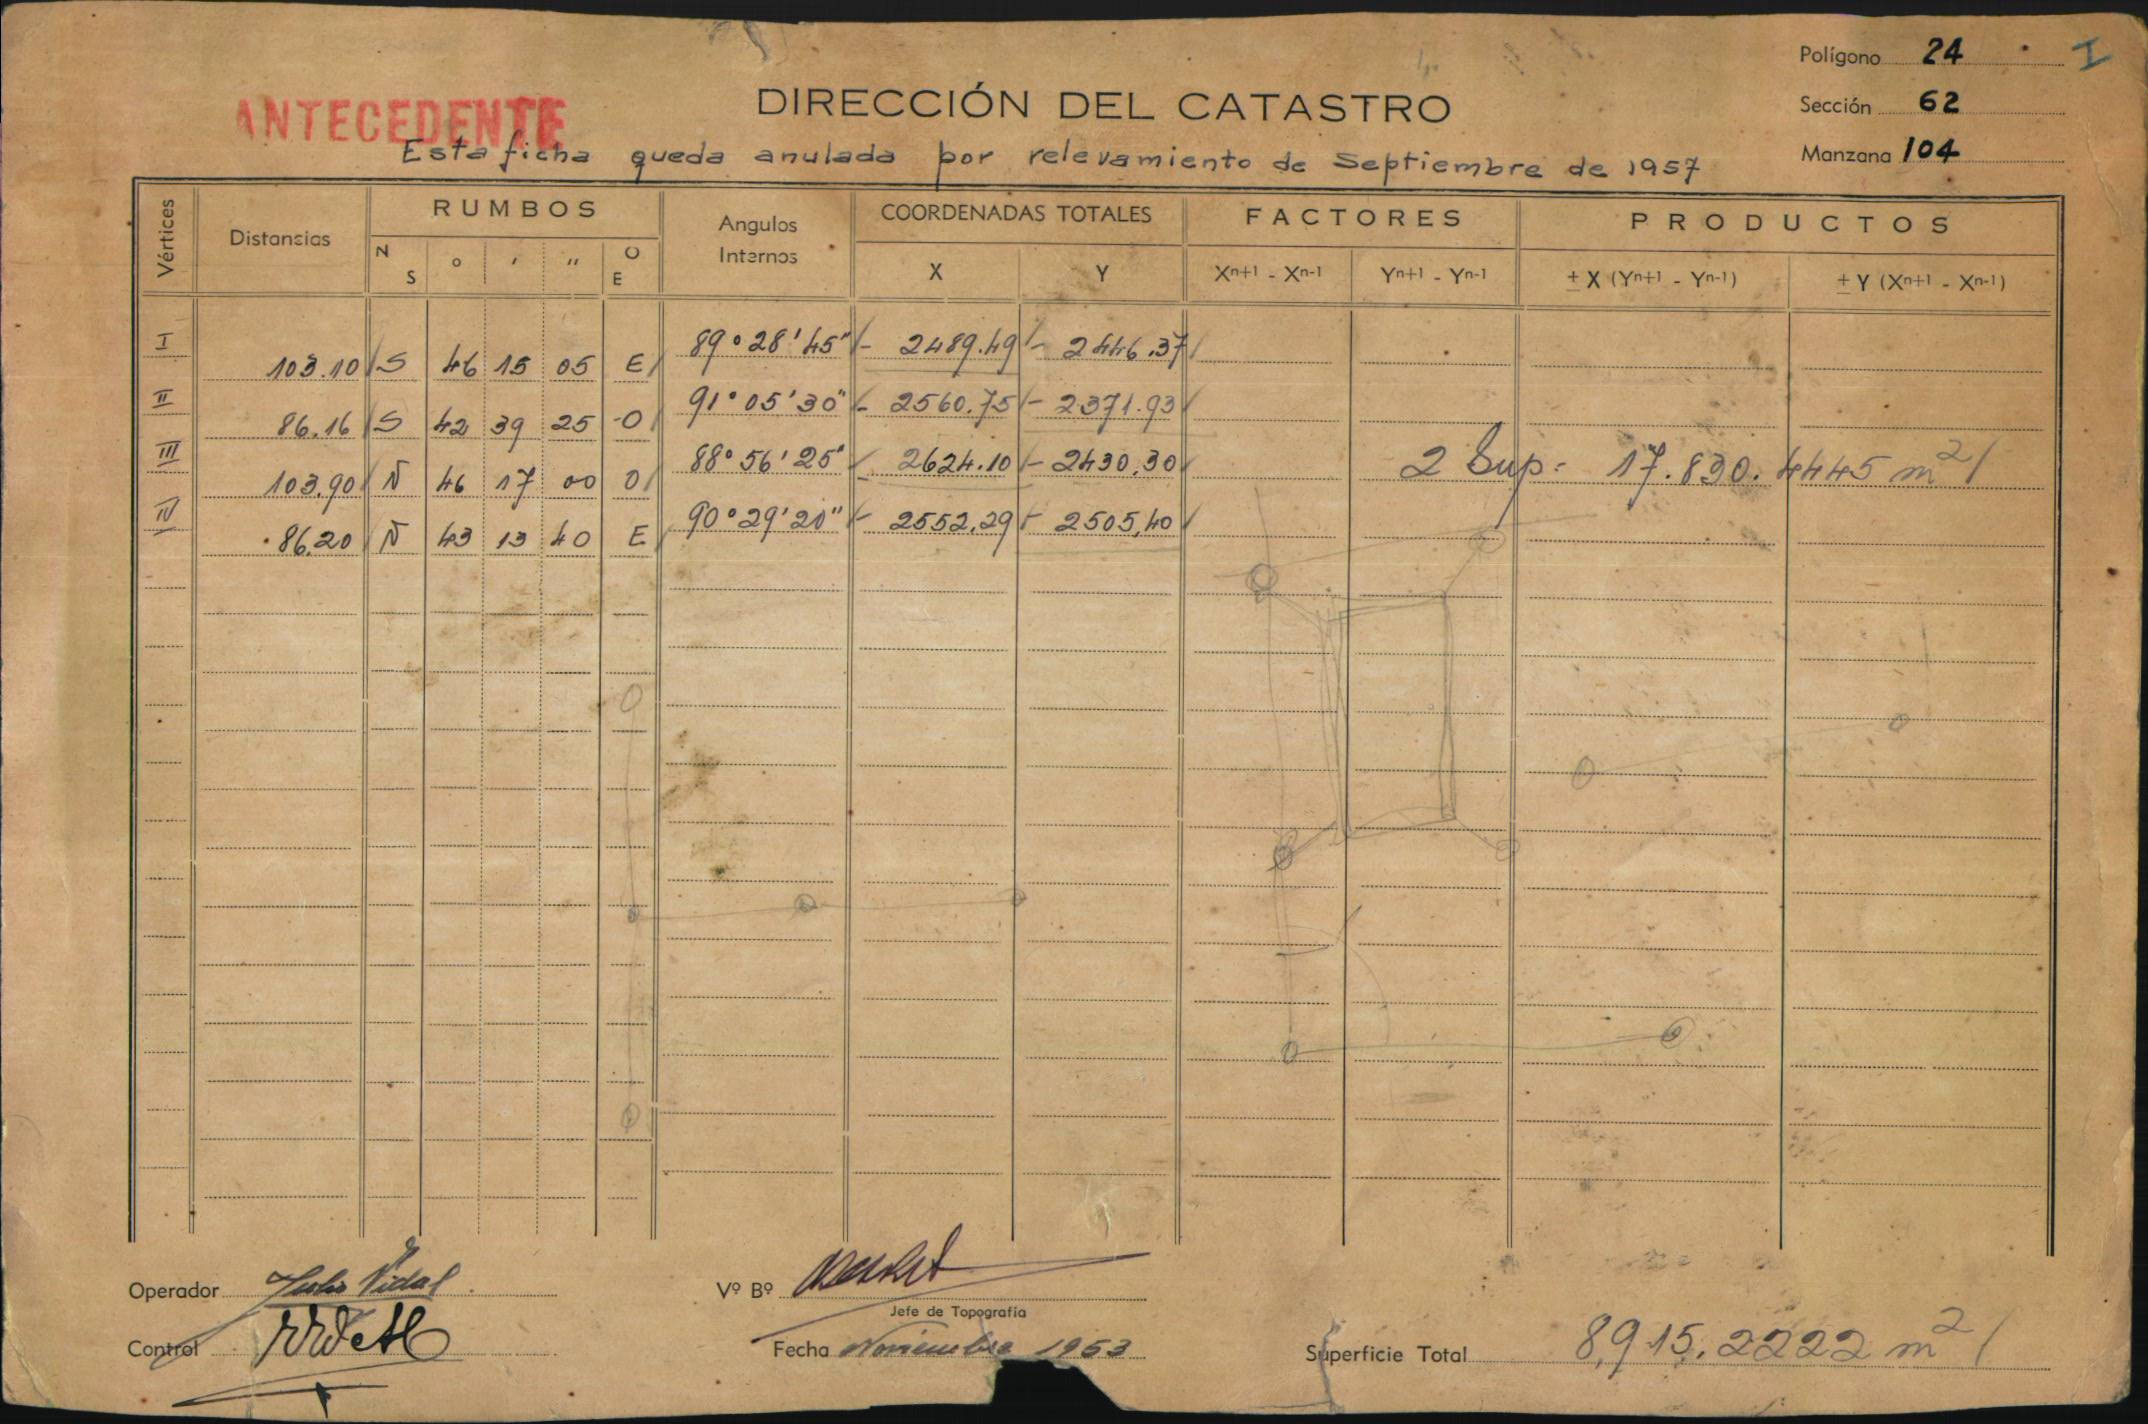 Polígono 24 I
ANTECEDENTE
DIRECCIÓN DEL CATASTRO
Sección 62
Esta ficha queda anulada por relevamiento de Septiembre de 1957
Manzana 104
Vértices Distancias RUMBOS Angulos Internos COORDENADAS TOTALES FACTORES PRODUCTOS
N S ° ' " O E X Y Xn+1 - Xn-1 Yn+1 - Yn-1 ± X (Yn+1 - Yn-1) ± Y (Xn+1 - Xn-1)
I 89°28'45" - 2489.49 - 2446.37
103.10 S 46 15 05 E
II 91°05'30" - 2560.75 - 2371.93
86.16 S 42 39 25 O
III 88°56'25" - 2624.10 - 2430.30
2 Sup= 17.830.4445 m2
103.90 N 46 17 00 O
IV 90°29'20" - 2552.29 - 2505,40
86.20 N 43 13 40 E
Operador Julio Vidal
Vº Bº
Jefe de Topografía
Control
Fecha Noviembre 1953
Superficie Total 8,915.2222 m2